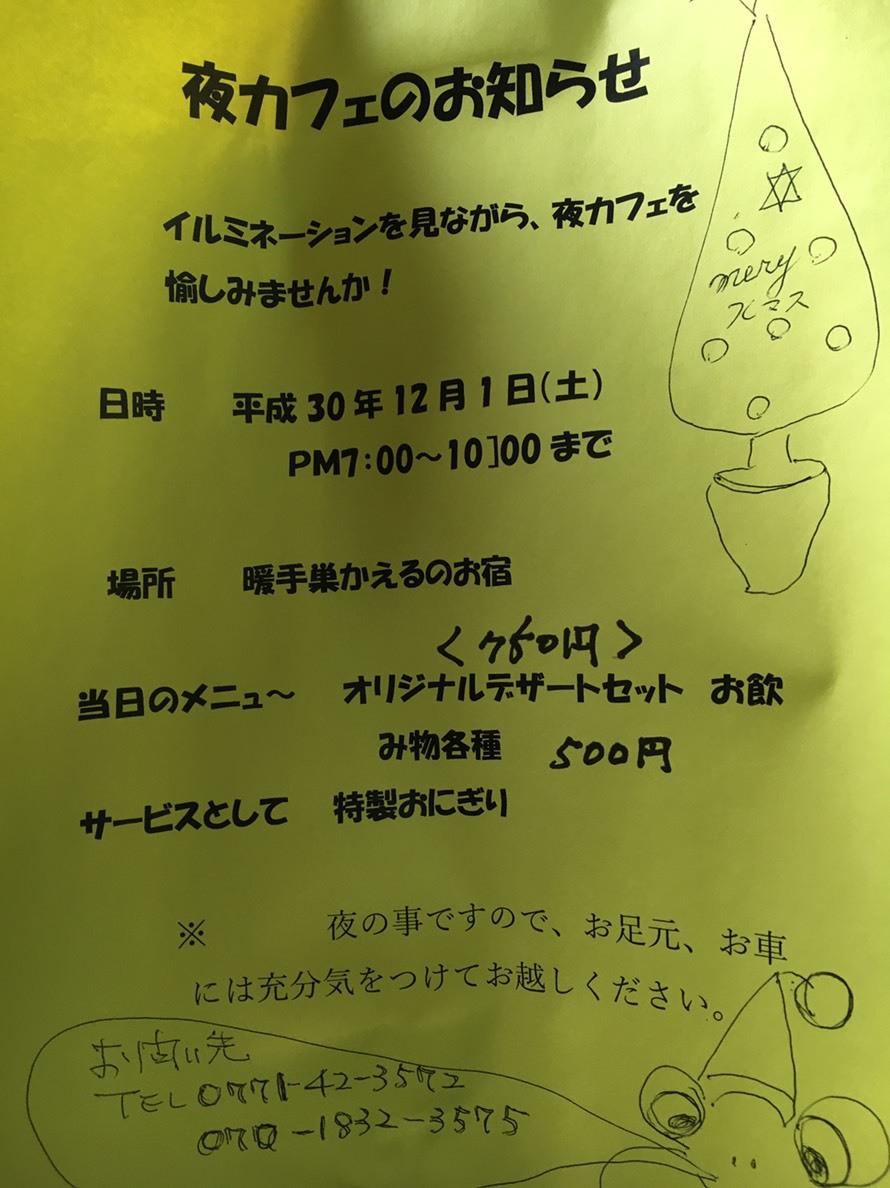 夜カフェのお知らせ
イルミネーションを見ながら、夜カフェを
愉しみませんか!
mery
Xマス
日時 平成30年12月1日(土)
PM7:00~10]00まで
場所 暖手巣かえるのお宿
<750円>
当日のメニュ~ オリジナルデザートセット お飲
み物各種 500円
サービスとして 特製おにぎり
※ 夜の事ですので、お足元、お車
には充分気をつけてお越しください。
お問い先
TEL 0771-42-3572
070-1832-3575